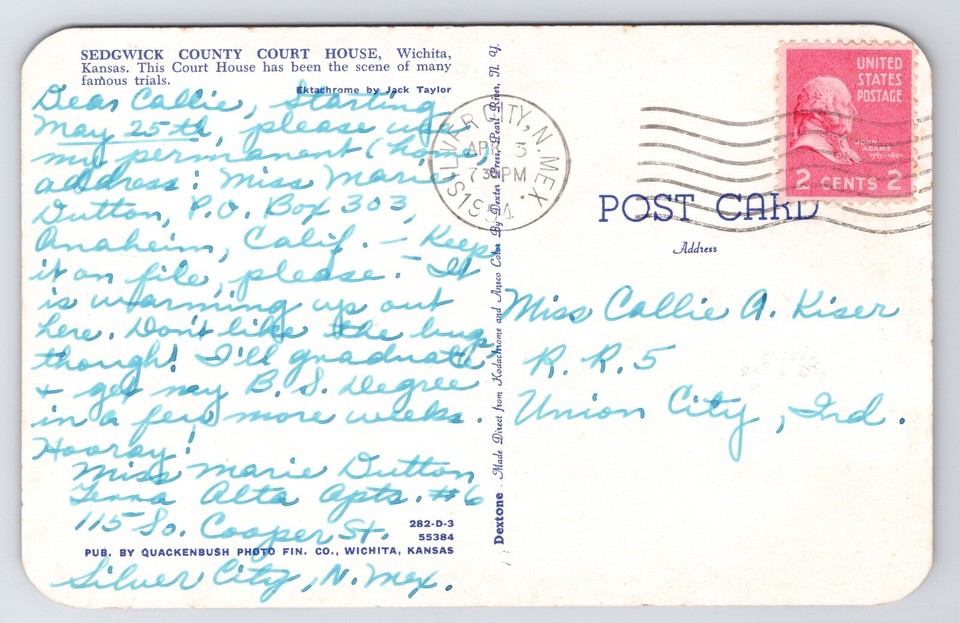 SEDGWICK COUNTY COURT HOUSE, Wichita,
Kansas. This Court House has been the scene of many
famous trials.
Ektachrome by Jack Taylor
Dear Callie, Starting
May 25th, please use
my permanent (home)
address: Miss Marie
Dutton, P.O. Box 303,
Anaheim, Calif. — Keep
it on file, please. — It
is warming up out
here. Don't like the bugs
though! I'll graduate
+ get my B. S. Degree
in a few more weeks.
Hooray!
Miss Marie Dutton
Terra Alta Apts. #6
115 So. Cooper St.
282-D-3
55384
PUB. BY QUACKENBUSH PHOTO FIN. CO., WICHITA, KANSAS
Silver City, N. Mex.
Dextone - Made Direct from Kodachrome and Ansco Color By Dexter Press, Pearl River, N. Y.
SILVER CITY, N. MEX.
APR 3
PM
1954
UNITED
STATES
POSTAGE
JOHN
ADAMS
1797-1801
2 CENTS 2
POST CARD
Address
Miss Callie A. Kiser
R. R. 5
Union City, Ind.